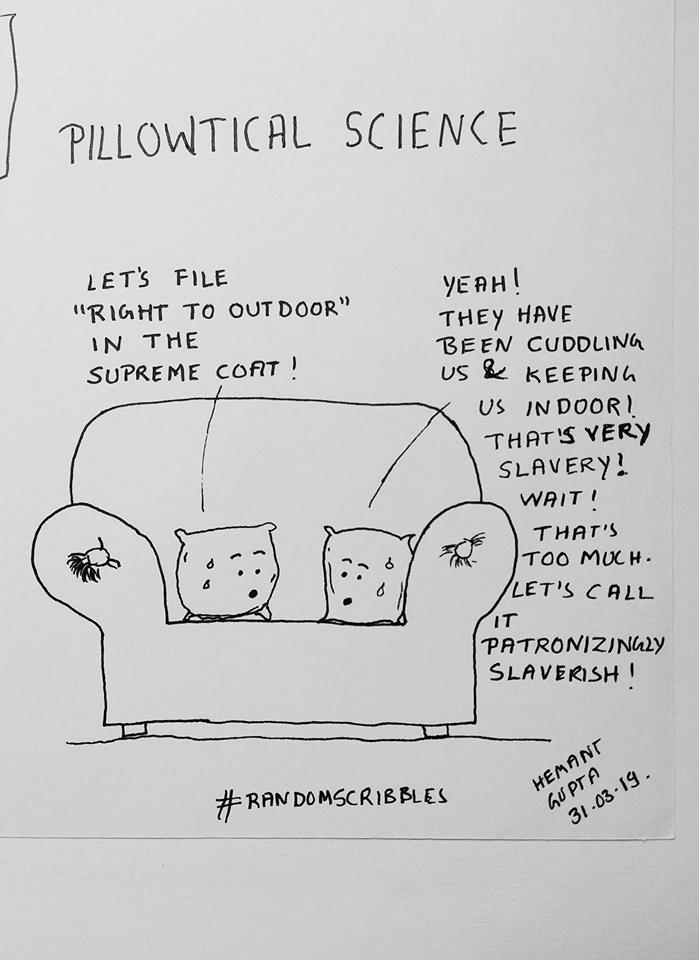 PILLOWTICAL SCIENCE
LET'S FILE
"RIGHT TO OUTDOOR"
IN THE
SUPREME COAT!
YEAH!
THEY HAVE
BEEN CUDDLING
US & KEEPING
US INDOOR!
THAT'S VERY
SLAVERY!
WAIT!
THAT'S
TOO MUCH.
LET'S CALL
IT
PATRONIZINGLY
SLAVERISH!
#RANDOMSCRIBBLES
HEMANT
GUPTA
31.03.19.